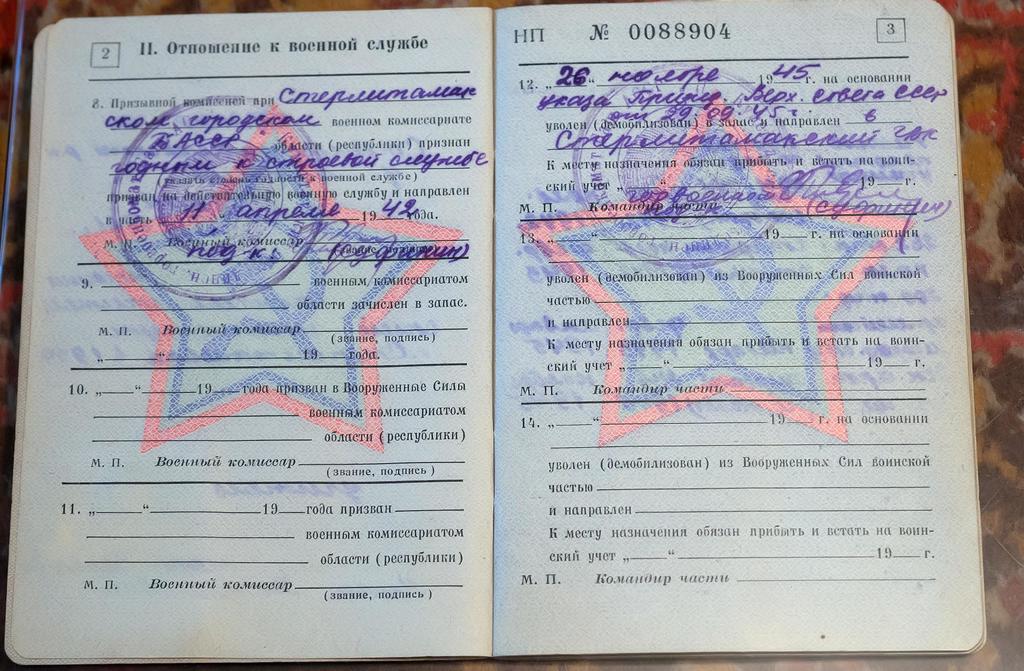 2
II. Отношение к военной службе
8. Призывной комиссией при Стерлитамак
ском городском военном комиссариате
БАССР области (республики) признан
годным к строевой службе
(указать степень годности к военной службе)
призван на действительную военную службу и направлен
в часть „11“ апреля 1942 года.
М. П. Военный комиссар
(звание, подпись)
9. военным комиссариатом
области зачислен в запас.
М. П. Военный комиссар
(звание, подпись)
„ “ 19 года.
10. „ “ 19 года призван в Вооруженные Силы
военным комиссариатом
области (республики)
М. П. Военный комиссар
(звание, подпись)
11. „ “ 19 года призван
военным комиссариатом
области (республики)
М. П. Военный комиссар
(звание, подпись)
НП № 0088904
3
12. „26“ ноября 1945 г. на основании
указа През. Верх. Совета СССР
от 29.09.45 г.
уволен (демобилизован) в запас и направлен в
Стерлитамакский гвк
К месту назначения обязан прибыть и встать на воин-
ский учет „ “ 19 г.
М. П. Командир части
13. „ “ 19 г. на основании
уволен (демобилизован) из Вооруженных Сил воинской
частью
и направлен
К месту назначения обязан прибыть и встать на воин-
ский учет „ “ 19 г.
М. П. Командир части
14. „ “ 19 г. на основании
уволен (демобилизован) из Вооруженных Сил воинской
частью
и направлен
К месту назначения обязан прибыть и встать на воин-
ский учет „ “ 19 г.
М. П. Командир части